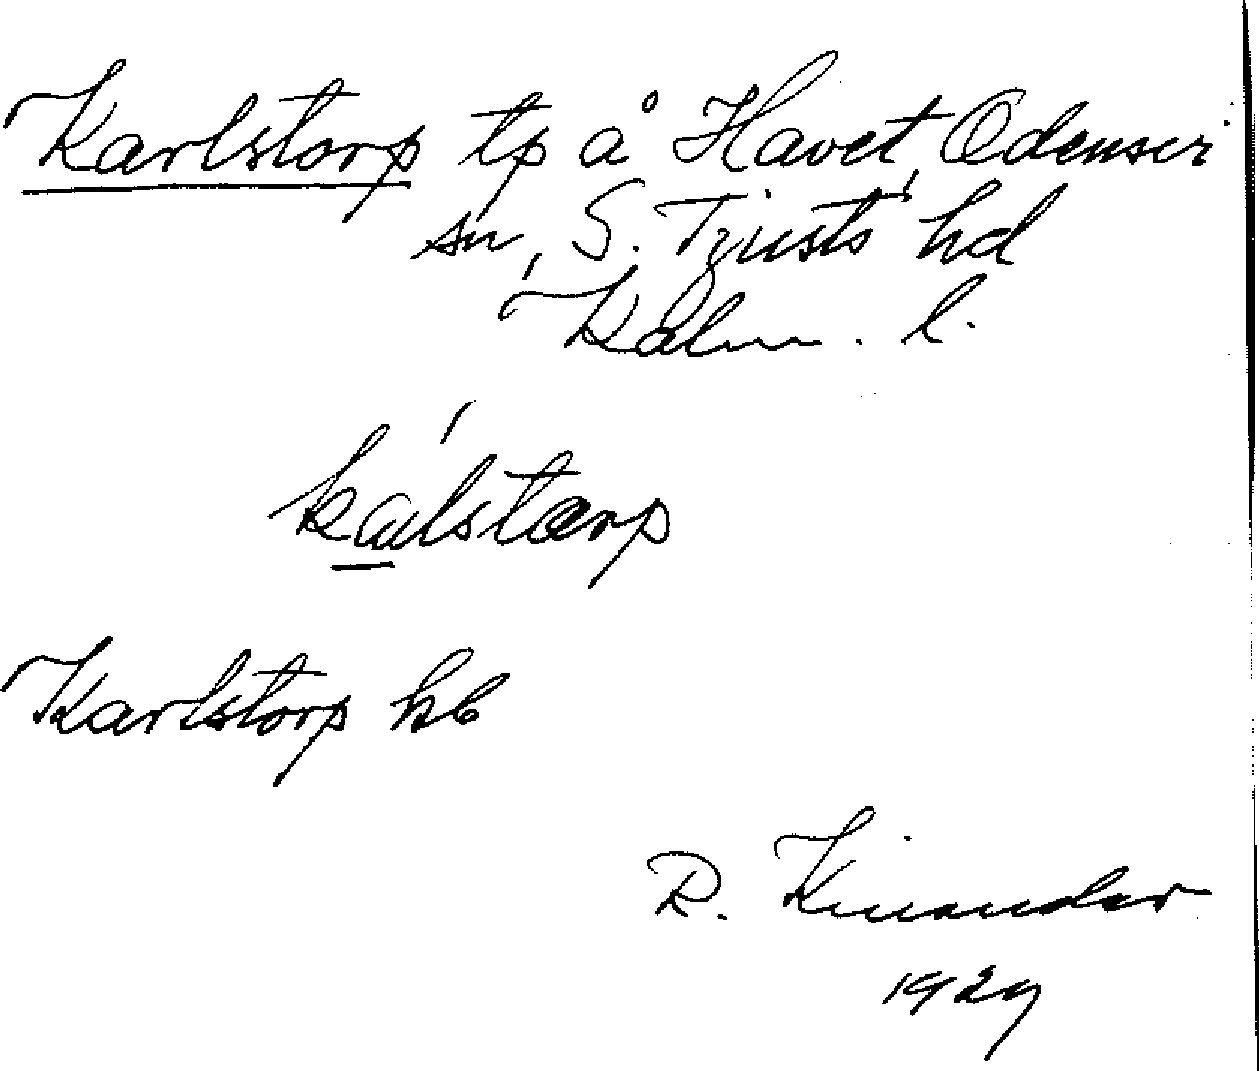 Karlstorp tp å Havet, Odensvi
sn, S. Tjusts hd
Kalm. l.
kalstorp
Karlstorp kb
R. Kinander
1929